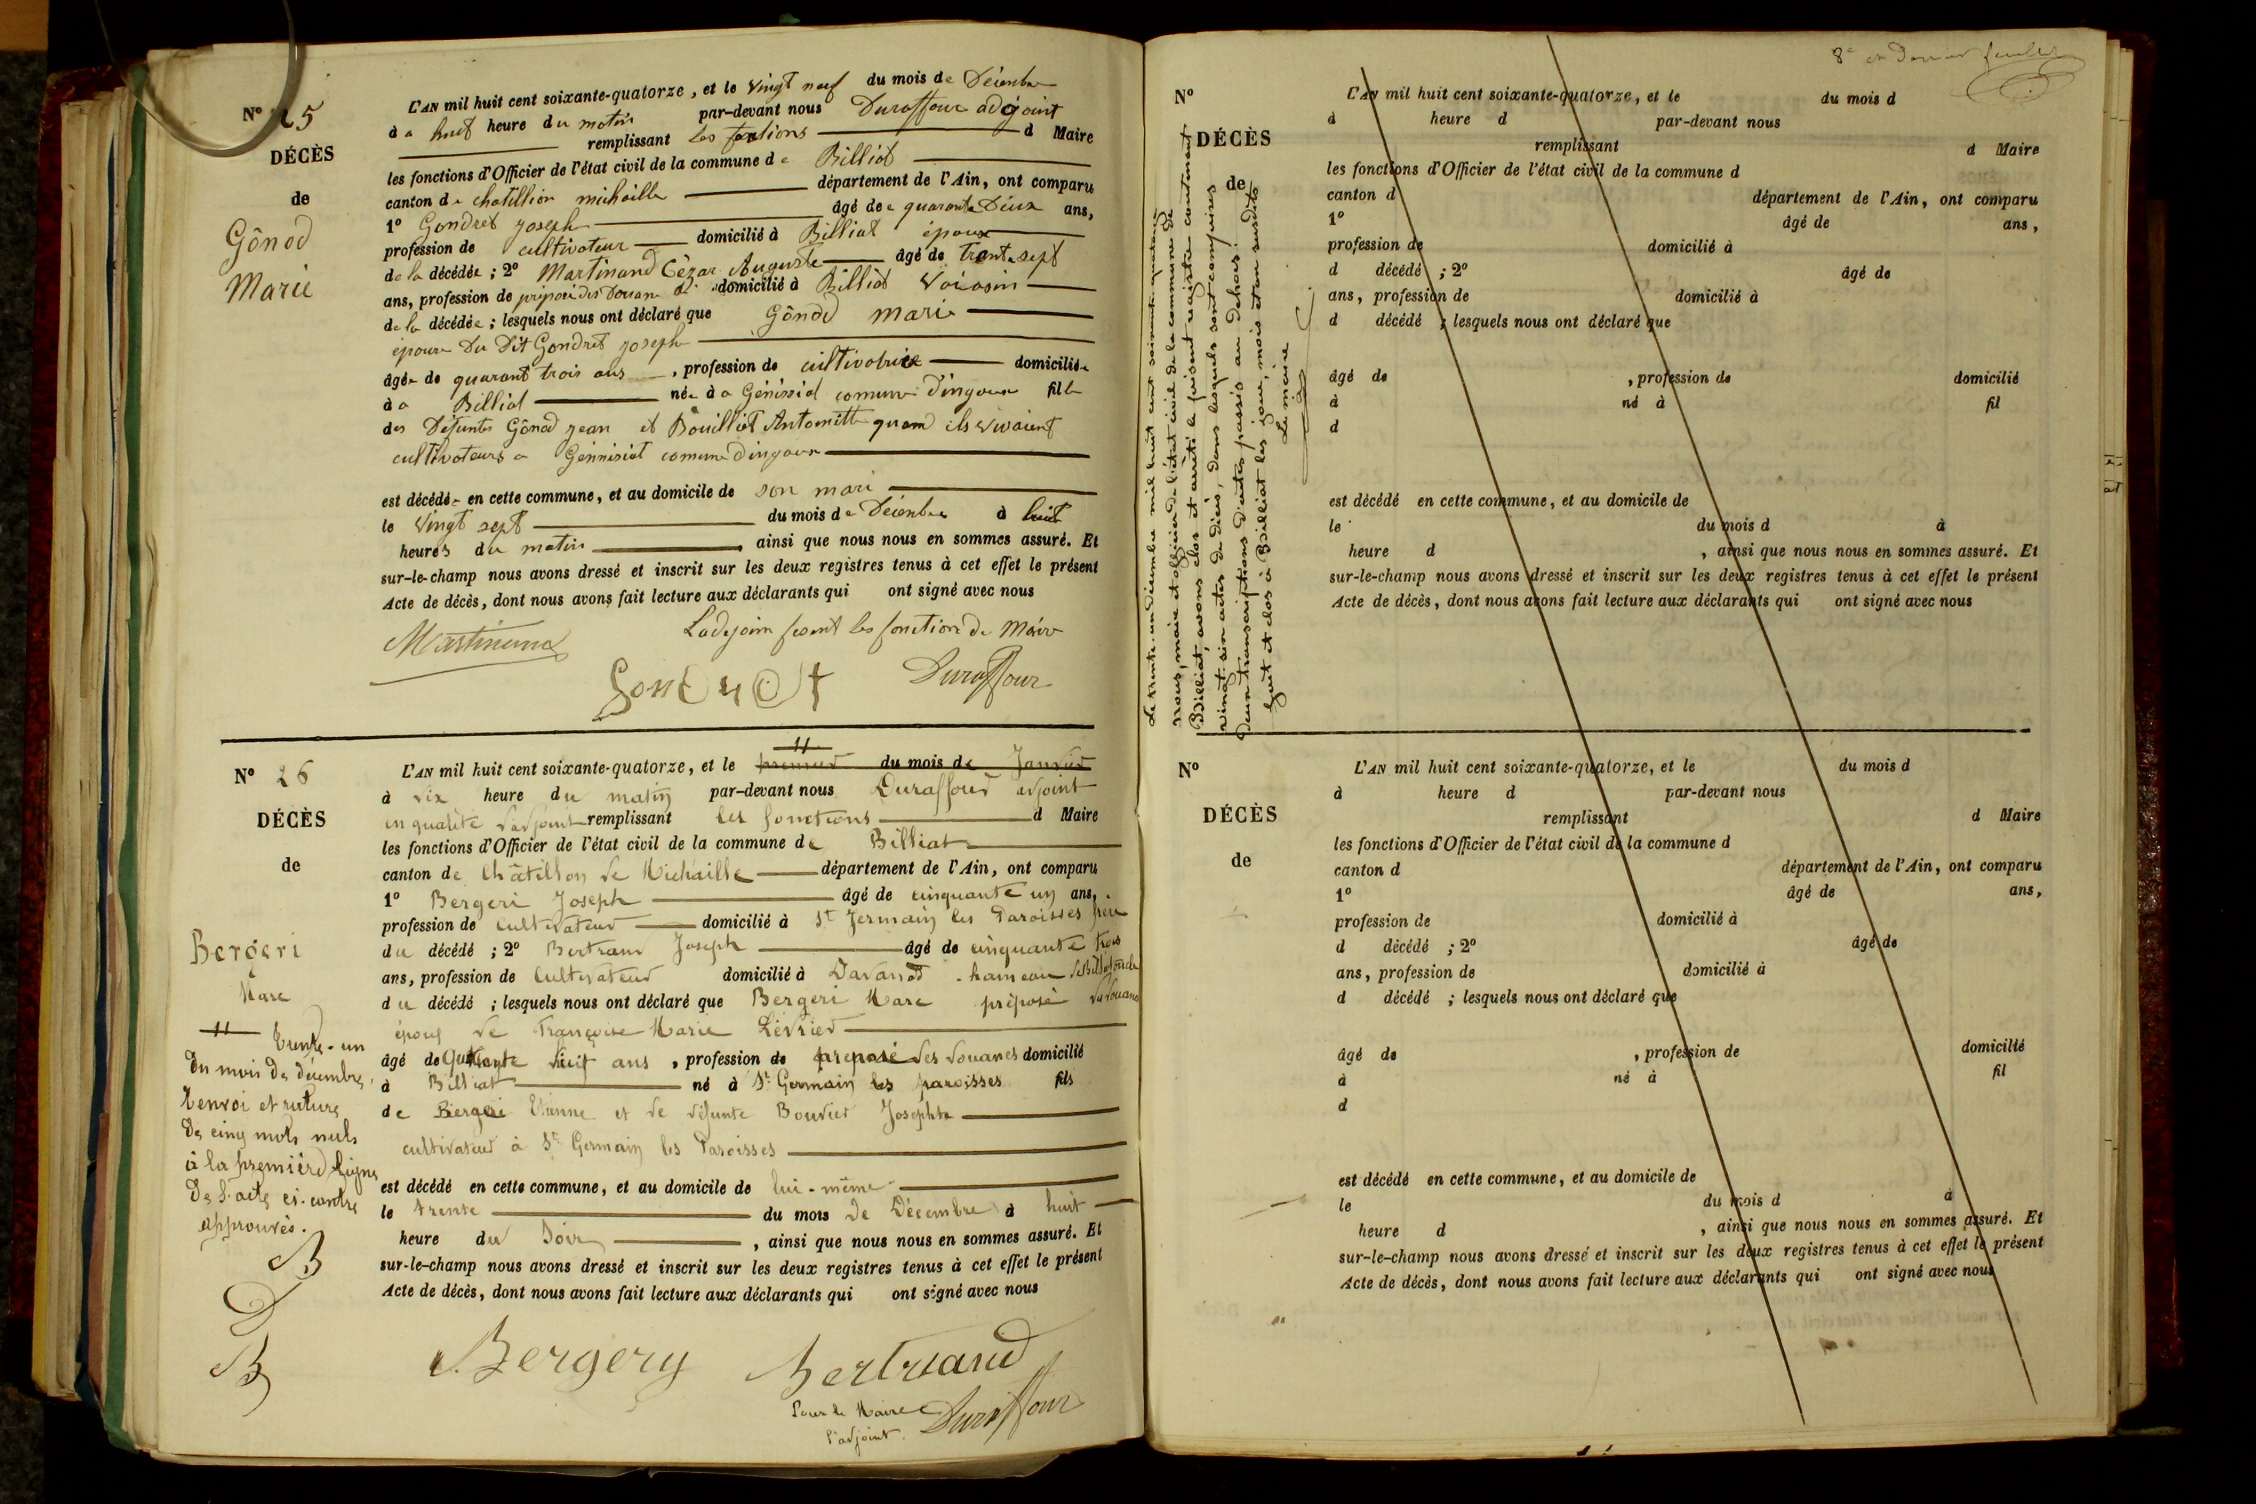 N° 25
DÉCÈS
de
Gônod
Marie
L'AN mil huit cent soixante-quatorze, et le vingt neuf du mois de Décembre
à a huit heure du matin par-devant nous Duraffour adjoint
remplissant les fonctions d Maire
les fonctions d'Officier de l'état civil de la commune de Billiat
canton de chatillion michaille département de l'Ain, ont comparu
1° Gondret joseph âgé de quarante Deux ans,
profession de cultivateur domicilié à Billiat époux
de la décédée ; 2° Martinand Cèzar Auguste âgé de trente sept
ans, profession de préposé des Douane domicilié à Billiat Voisin
de la décédée ; lesquels nous ont déclaré que Gônod marie
épouse Du Dit Gondret joseph
âgée de quarant trois ans, profession de cultivatrice domiciliée
à a Billiat née à a Génissiat comune d'injoux fille
des Défunts Gônod jean et Bouilliet Antoinette quand ils vivaient
cultivateurs a Génnisiat comune d'injoux
est décédée en cette commune, et au domicile de son mari
le vingt sept du mois de Décembre à huit
heures du matin, ainsi que nous nous en sommes assuré. Et
sur-le-champ nous avons dressé et inscrit sur les deux registres tenus à cet effet le présent
Acte de décès, dont nous avons fait lecture aux déclarants qui ont signé avec nous
Martinand Ladejoin fesent les fonction de Maire
Gondret Duraffour
N° 26
DÉCÈS
de
Bergeri
Marc
trente-un
du mois de décembre,
renvoi et rature
de cinq mots nuls
à la première ligne
de l'acte ci-contre
approuvés.
B
D
B
L'AN mil huit cent soixante-quatorze, et le premier du mois de Janvier
à dix heure du matin par-devant nous Duraffour adjoint
en qualité d'adjoint remplissant les fonctions d Maire
les fonctions d'Officier de l'état civil de la commune de Billiat
canton de Châtillon de Michaille département de l'Ain, ont comparu
1° Bergeri Joseph âgé de cinquante un ans,
profession de cultivateur domicilié à St Germain les Paroisses frère
du décédé ; 2° Bertrand Joseph âgé de cinquante trois
ans, profession de Cultivateur domicilié à Davanod hameau
du décédé ; lesquels nous ont déclaré que Bergeri Marc préposé
époux de Françoise Marie Lévrier
âgé de Quarante huit ans, profession de préposé des douanes domicilié
à Billiat né à St Germain les paroisses fils
de Bergeri Etienne et de défunte Bouvier Josephte
cultivateur à St Germain les Paroisses
est décédé en cette commune, et au domicile de lui-même
le trente du mois de Décembre à huit
heure du Soir, ainsi que nous nous en sommes assuré. Et
sur-le-champ nous avons dressé et inscrit sur les deux registres tenus à cet effet le présent
Acte de décès, dont nous avons fait lecture aux déclarants qui ont signé avec nous
Bergery Bertrand
Pour le Maire Duraffour
l'adjoint.
8e et dernier feuillet
Le trente-un décembre mil huit cent soixante-quatorze
nous, maire et officier de l'état civil de la commune de
Billiat, avons clos et arrêté le présent registre contenant
vingt-six actes de décès, dans lesquels sont comprises
deux transcriptions d'actes passés au dehors.
Fait et clos à Billiat les jour, mois et an susdits
Le maire
N°
DÉCÈS
de
L'AN mil huit cent soixante-quatorze, et le du mois d
à heure d par-devant nous
remplissant d Maire
les fonctions d'Officier de l'état civil de la commune d
canton d département de l'Ain, ont comparu
1° âgé de ans,
profession de domicilié à
d décédé ; 2° âgé de
ans, profession de domicilié à
d décédé ; lesquels nous ont déclaré que
âgé de , profession de domicilié
à né à fil
d
est décédé en cette commune, et au domicile de
le du mois d à
heure d , ainsi que nous nous en sommes assuré. Et
sur-le-champ nous avons dressé et inscrit sur les deux registres tenus à cet effet le présent
Acte de décès, dont nous avons fait lecture aux déclarants qui ont signé avec nous
N°
DÉCÈS
de
L'AN mil huit cent soixante-quatorze, et le du mois d
à heure d par-devant nous
remplissant d Maire
les fonctions d'Officier de l'état civil de la commune d
canton d département de l'Ain, ont comparu
1° âgé de ans,
profession de domicilié à
d décédé ; 2° âgé de
ans, profession de domicilié à
d décédé ; lesquels nous ont déclaré que
âgé de , profession de domicilié
à né à fil
d
est décédé en cette commune, et au domicile de
le du mois d à
heure d , ainsi que nous nous en sommes assuré. Et
sur-le-champ nous avons dressé et inscrit sur les deux registres tenus à cet effet le présent
Acte de décès, dont nous avons fait lecture aux déclarants qui ont signé avec nous